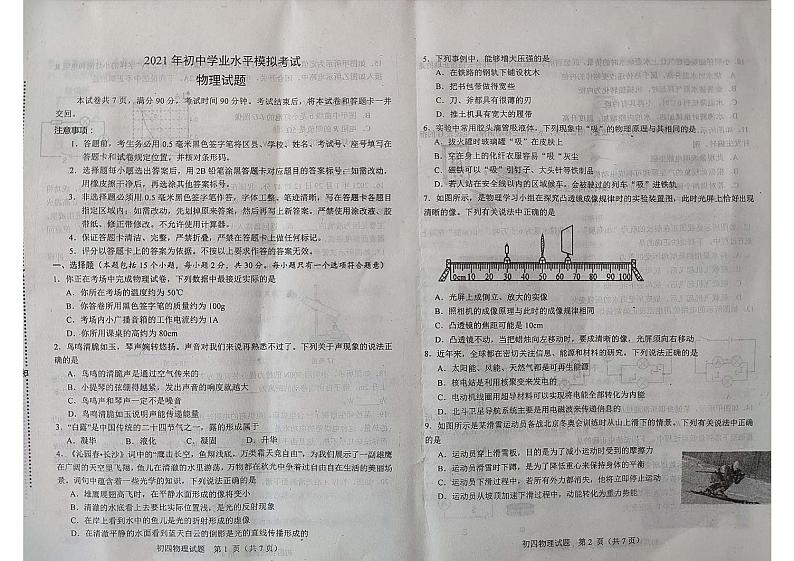 2021 年初中学业水平模拟考试
物理试题
本试卷共 7 页，满分 90 分，考试时间 90 分钟。考试结束后，将本试卷和答题卡一并
交回。
注意事项：
1．答题前，考生务必用 0.5 毫米黑色签字笔将区县、学校、姓名、考试号、座号填写在
答题卡和试卷规定位置，并核对条形码。
2．选择题每小题选出答案后，用 2B 铅笔涂黑答题卡对应题目的答案标号；如需改动，
用橡皮擦干净后，再选涂其他答案标号。
3．非选择题必须用 0.5 毫米黑色签字笔作答，字体工整、笔迹清晰，写在答题卡各题目
指定区域内；如需改动，先划掉原来答案，然后再写上新答案。严禁使用涂改液、胶
带纸、修正带修改。不允许使用计算器。
4．保证答题卡清洁、完整，严禁折叠，严禁在答题卡上做任何标记。
5．评分以答题卡上的答案为依据。不按以上要求作答的答案无效。
一、选择题（本题包括 15 个小题，每小题 2 分，共 30 分。每小题只有一个选项符合题意）
1．你正在考场中完成物理试卷，下列数据中最接近实际的是
A．你所在考场的温度约为 50℃
B．你答卷所用黑色签字笔的质量约为 100g
C．考场内小广播音箱的工作电流约为 1A
D．你所用课桌的高约为 80cm
2．鸟鸣清脆如玉，琴声婉转悠扬。声音对我们来说再熟悉不过了。下列关于声现象的说法正
确的是
A．鸟鸣的清脆声是通过空气传来的
B．小提琴的弦绷得越紧，发出声音的响度就越大
C．鸟鸣声和琴声一定不是噪音
D．鸟鸣清脆如玉说明声能传递能量
3．“白露”是中国传统的二十四节气之一，露的形成属于
A．凝华 B．液化 C．凝固 D．升华
4．《沁园春·长沙》词中的“鹰击长空，鱼翔浅底，万类霜天竞自由”，为我们展示了一副雄鹰
在广阔的天空里飞翔，鱼儿在清澈的水里游荡，万物都在秋光中争着过自由自在生活的美丽场
景。词句中蕴含着一些光学的知识，下列说法正确的是
A．雄鹰展翅高飞时，在平静水面形成的像将变小
B．清澈的水底看上去要比实际位置浅，是光的反射现象
C．在岸上看到水中的鱼儿是光的折射形成的虚像
D．在清澈平静的水面看到蓝天白云的倒影是光的直线传播形成的
初四物理试题 第 1 页（共 7 页）
5．下列事例中，能够增大压强的是
A．在铁路的钢轨下铺设枕木
B．把书包带做得宽些
C．刀、斧都具有很薄的刃
D．推土机具有宽大的履带
6．实验中常用胶头滴管吸液体，下列现象中“吸”的物理原理与其相同的是
A．拔火罐时玻璃罐“吸”在皮肤上
B．穿在身上的化纤衣服容易“吸”灰尘
C．磁铁可以“吸”引钉子、大头针等铁制品
D．若人站在安全线以内的区域候车，会被驶过的列车“吸”进铁轨
7．如图所示，是物理学习小组在探究凸透镜成像规律时的实验装置图，此时光屏上恰好出现
清晰的像。下列有关说法中正确的是
0cm 10 20 30 40 50 60 70 80 90 100
A．光屏上成倒立、放大的实像
B．照相机的成像原理与此时的成像规律相同
C．凸透镜的焦距可能是 10cm
D．凸透镜不动，当把蜡烛向左移动时，要成清晰的像，光屏须向右移动
8．近年来，全球都在密切关注信息、能源和材料的研究。下列说法正确的是
A．太阳能、风能、天然气都是可再生能源
B．核电站是利用核聚变来发电的
C．电动机线圈用超导材料制成可以实现将电能全部转化为内能
D．北斗卫星导航系统主要是用电磁波来传递信息的
9．如图所示是某滑雪运动员备战北京冬奥会训练时从山上滑下的情景。下列有关说法中正确
的是
A．运动员穿上滑雪板，目的是为了减小运动时受到的摩擦力
B．运动员滑雪时下蹲，是为了降低重心来保持身体的平衡
C．运动员下滑过程中，若所有外力都消失，他将立即停止运动
D．运动员从坡顶加速下滑过程中，动能转化为重力势能
初四物理试题 第 2 页（共 7 页）